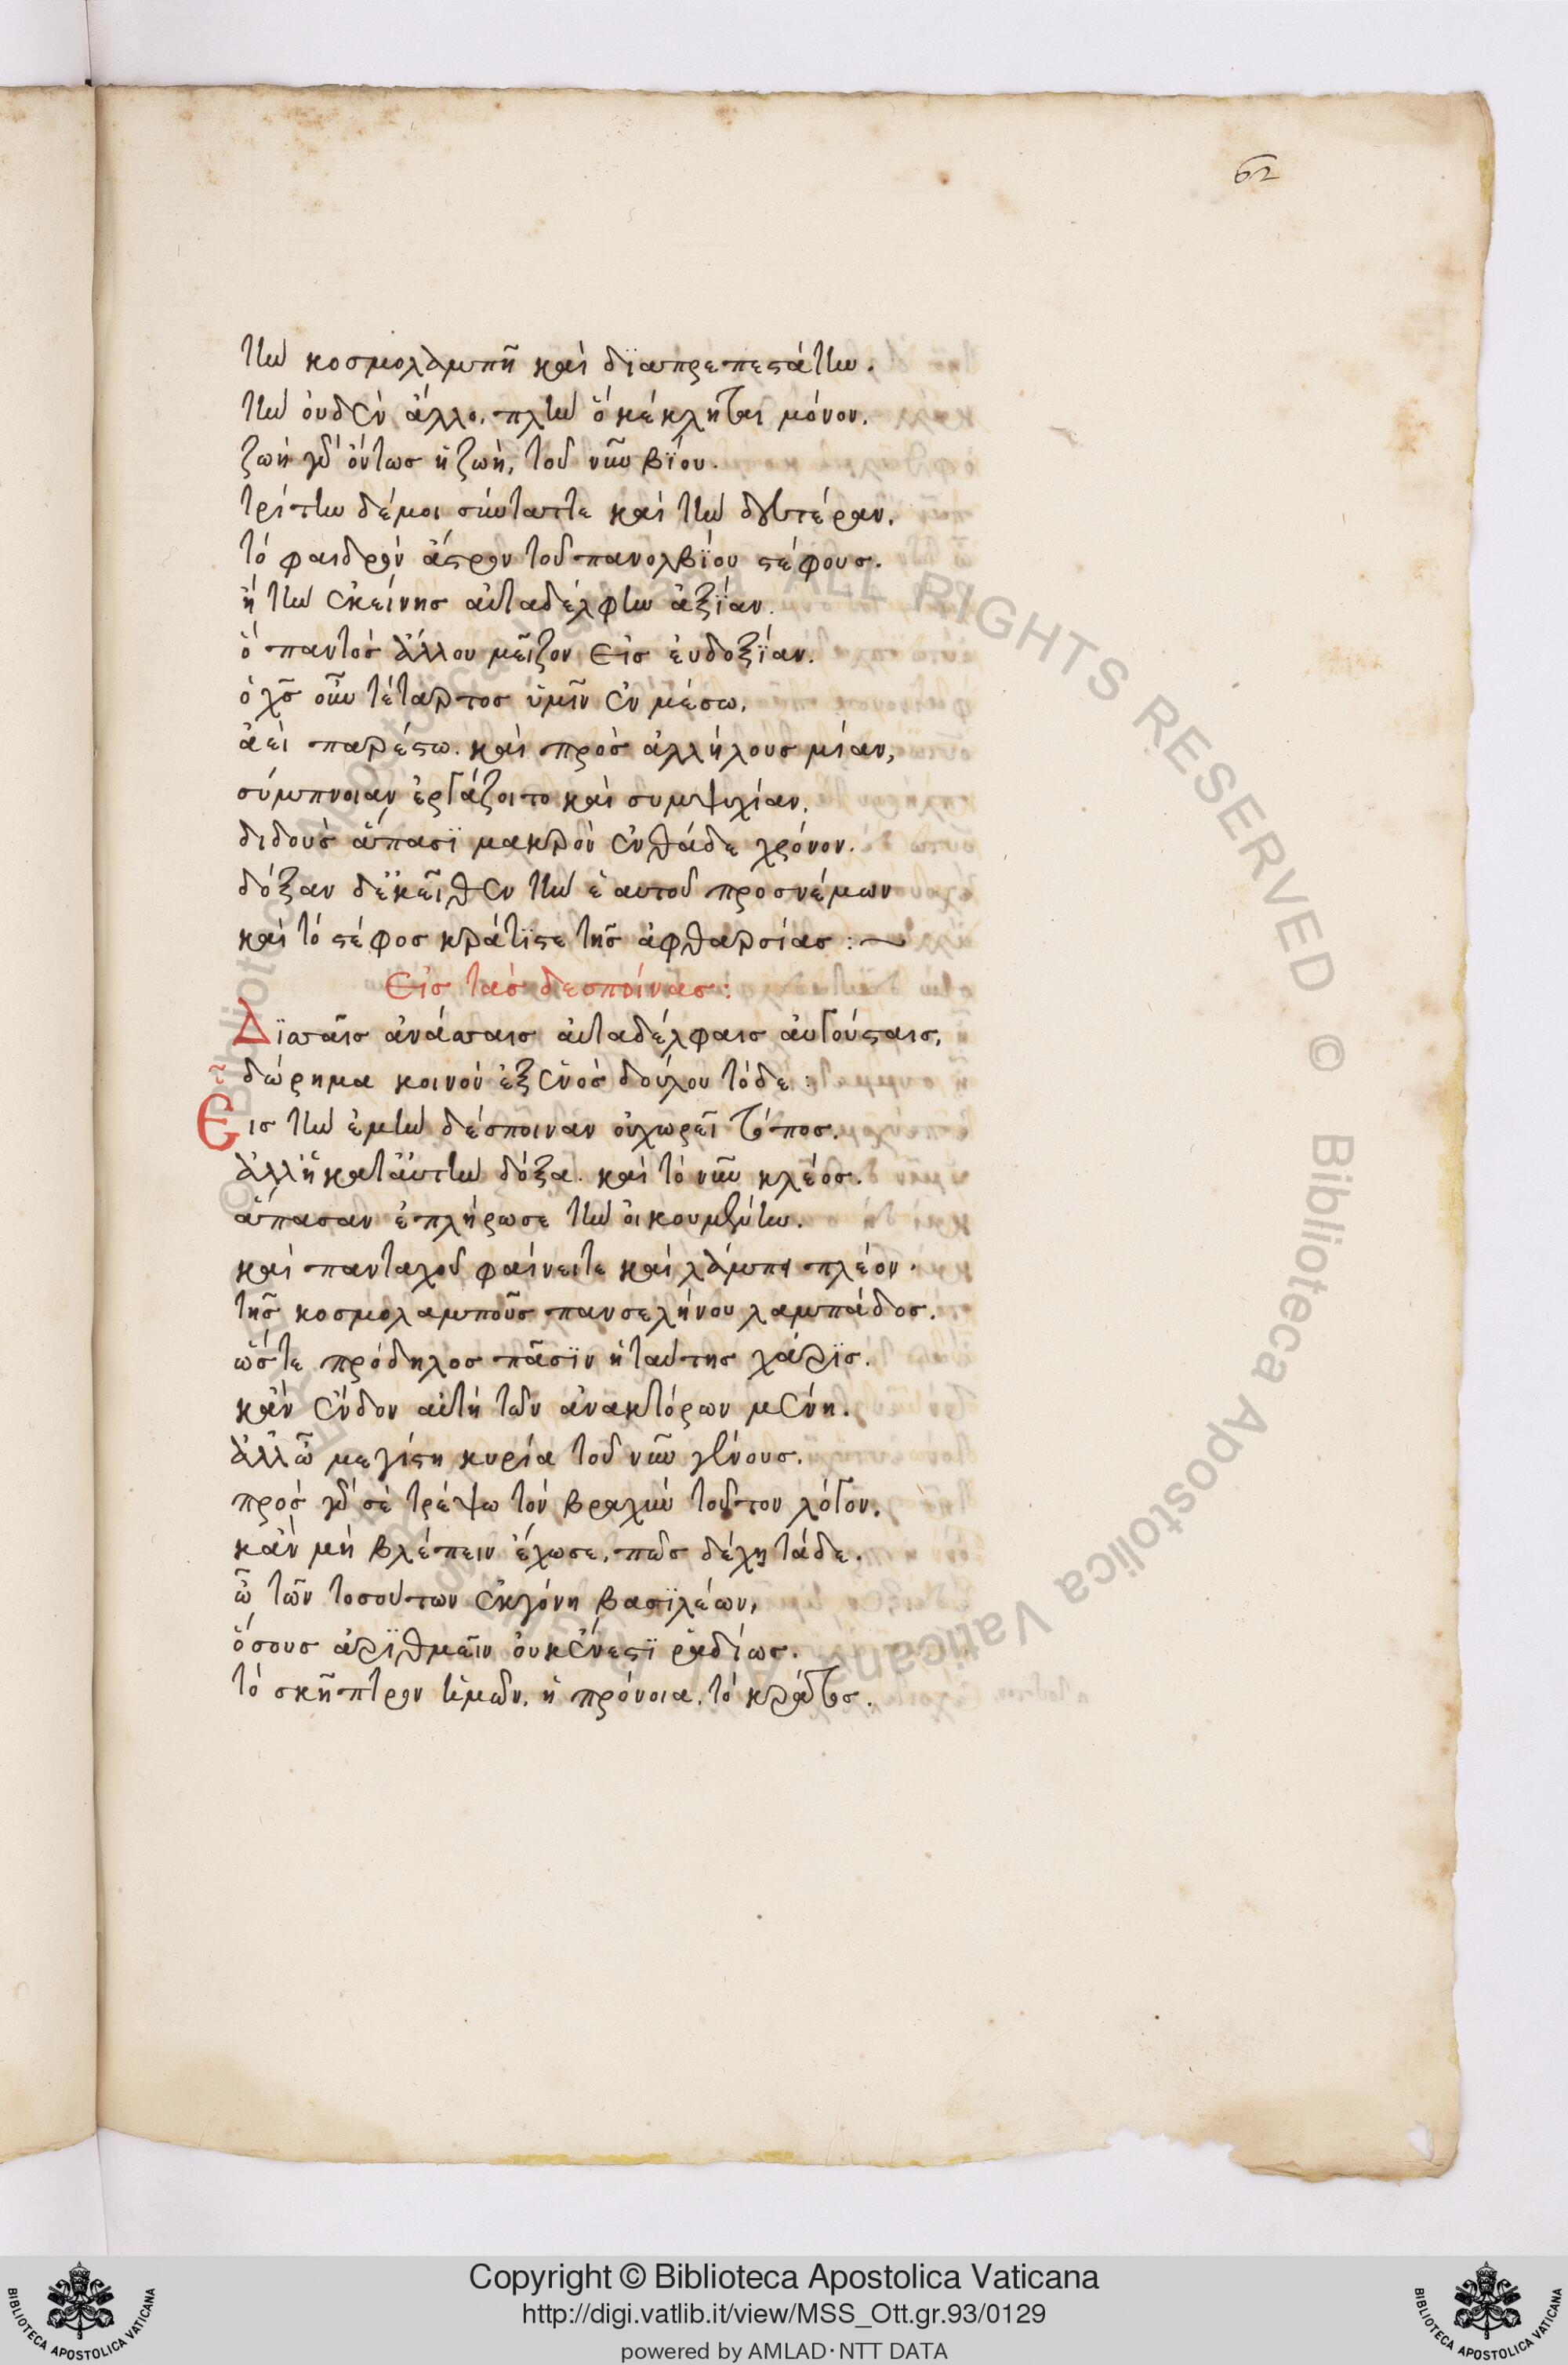 62
τὴν κοσμολαμπῆ καὶ δϊαπρεπεστάτην.
τὴν οὐδὲν ἄλλο. πλὴν ὃ κέκληται μόνον.
ζωὴ γὰρ ὄντως ἡ ζωὴ, τοῦ νῦν βϊου.
τρίτην δέμοι σύναπτε καὶ τὴν δευτέραν.
τὸ φαιδρὸν ἄστρον τοῦ πανολβϊου στέφους.
ἢ τὴν ἐκείνης αὐταδέλφην ἀξϊαν.
ὃ παντὸς ἄλλου μεῖζον εἰς εὐδοξϊαν.
ὁ χς οὖν τέταρτος ὑμῖν ἐν μέσω,
ἀεὶ παρέστω. καὶ πρὸς ἀλλήλους μίαν,
σύμπνοιαν ἐργάζοιτο καὶ συμψυχίαν.
διδοὺς ἅπασϊ μακρὸν ἐνθάδε χρόνον.
δόξαν δἐκεῖθεν τὴν ἑαυτοῦ προσνέμων
καὶ τὸ στέφος κράτϊστε τῆς ἀφθαρσίας :~
Εἰς τὰς δεσποίνας :
Δϊτταῖς ἀνάσσαις αὐταδέλφαις αὐγούσταις,
δώρημα κοινὸν ἐξ ἑνὸς δούλου τόδε :
Εἰς τὴν ἐμὴν δέσποιναν οὐ χωρεῖ τόπος.
ἀλλ' ἡ κατ' αὐτὴν δόξα. καὶ τὸ νῦν κλέος.
ἅπασαν ἐπλήρωσε τὴν οἰκουμένην.
καὶ πανταχοῦ φαίνειτε καὶ λάμπει πλέον.
τῆς κοσμολαμποῦς πανσελήνου λαμπάδος.
ὥστε πρόδηλος πᾶσϊν ἡ ταύτης χάρϊς.
κἂν ἔνδον αὐτὴ τῶν ἀνακτόρων μένη.
ἀλλ' ὦ μεγίστη κυρία τοῦ νῦν γένους.
πρὸς γὰρ σὲ τρέψω τὸν βραχὺν τοῦτον λόγον.
κἂν μὴ βλέπειν ἔχωσε, πῶς δέχη τάδε.
ὦ τῶν τοσούτων ἐκγόνη βασϊλέων,
ὅσους ἀρϊθμεῖν οὐκ ἔνεστϊ ῥαδίως.
τὸ σκῆπτρον ἡμῶν. ἡ πρόνοια. τὸ κράτος.
© Biblioteca Apostolica Vaticana ALL RIGHTS RESERVED © Biblioteca Apostolica Vaticana ALL RIGHTS RESERVED
Copyright © Biblioteca Apostolica Vaticana
http://digi.vatlib.it/view/MSS_Ott.gr.93/0129
powered by AMLAD·NTT DATA
BIBLIOTECA APOSTOLICA VATICANA
BIBLIOTECA APOSTOLICA VATICANA